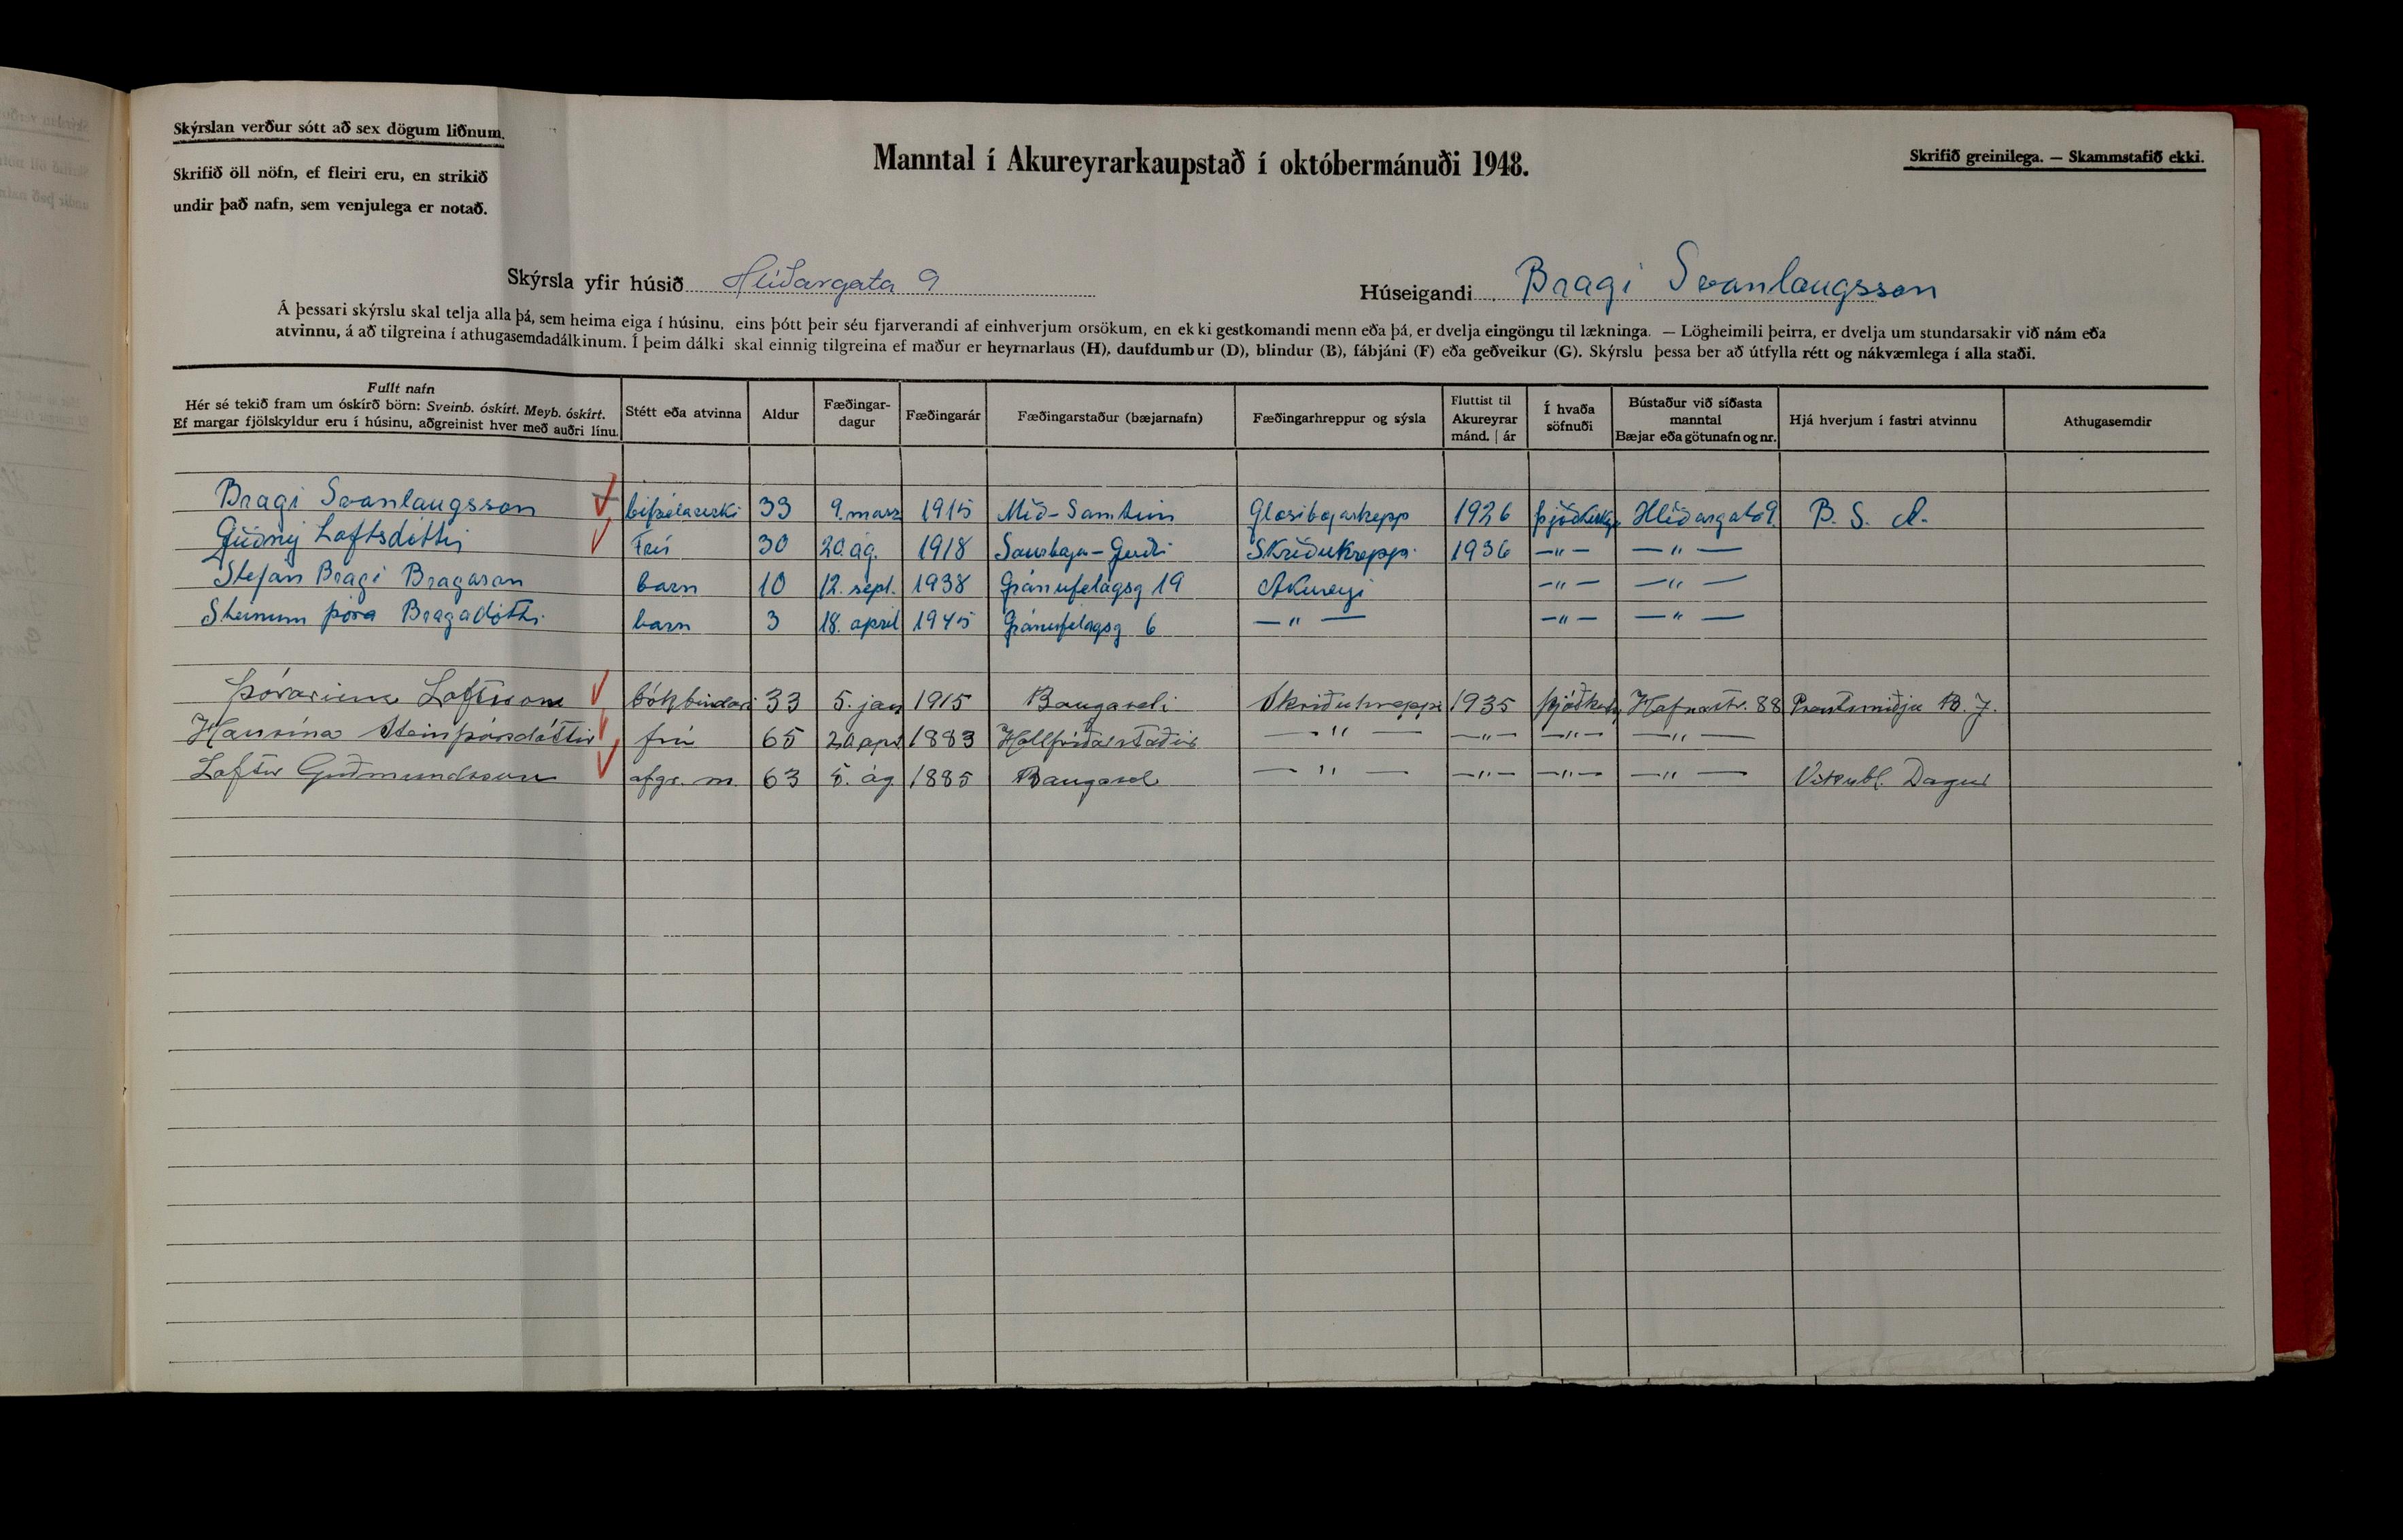 Skýrslan verður sótt að sex dögum liðnum.
Skrifið öll nöfn, ef fleiri eru, en strikið
undir það nafn, sem venjulega er notað.
Manntal í Akureyrarkaupstað í októbermánuði 1948.
Skrifið greinilega. — Skammstafið ekki.
Skýrsla yfir húsið Hlíðargata 9
Húseigandi Bragi Svanlaugsson
Á þessari skýrslu skal telja alla þá, sem heima eiga í húsinu, eins þótt þeir séu fjarverandi af einhverjum orsökum, en ekki gestkomandi menn eða þá, er dvelja eingöngu til lækninga. — Lögheimili þeirra, er dvelja um stundarsakir við nám eða
atvinnu, á að tilgreina í athugasemdadálkinum. Í þeim dálki skal einnig tilgreina ef maður er heyrnarlaus (H), daufdumbur (D), blindur (B), fábjáni (F) eða geðveikur (G). Skýrslu þessa ber að útfylla rétt og nákvæmlega í alla staði.
Fullt nafn
Hér sé tekið fram um óskírð börn: Sveinb. óskírt. Meyb. óskírt.
Ef margar fjölskyldur eru í húsinu, aðgreinist hver með auðri línu.
Stétt eða atvinna
Aldur
Fæðingar-
dagur
Fæðingarár
Fæðingarstaður (bæjarnafn)
Fæðingarhreppur og sýsla
Fluttist til
Akureyrar
mánd. | ár
Í hvaða
söfnuði
Bústaður við síðasta
manntal
Bæjar eða götunafn og nr.
Hjá hverjum í fastri atvinnu
Athugasemdir
Bragi Svanlaugsson 33 9. mars 1915 Mið-Samtún 1926 Hlíðargata 9 B. S. A.
Guðný Loftsdóttir Frú 30 20. ág. 1918 Skriðuhrepp. 1936 —"— —"—
Stefán Bragi Bragason barn 10 12. sept. 1938 Gránufélagsg 19 Akureyri —"— —"—
Steinunn Þóra Bragadóttir barn 3 18. apríl 1945 Gránufélagsg 6 —"— —"— —"—
Þórarinn Loftsson bókbindari 33 5. jan 1915 Baugaseli Skriðuhreppi 1935 Hafnarstr. 88 Prentsmiðju B. J.
Hansína Steinþórsdóttir frú 65 1883 —"— —"— —"— —"—
Loftur Guðmundsson afgr. m. 63 5. ág. 1885 Baugasel —"— —"— —"— —"— Dagur